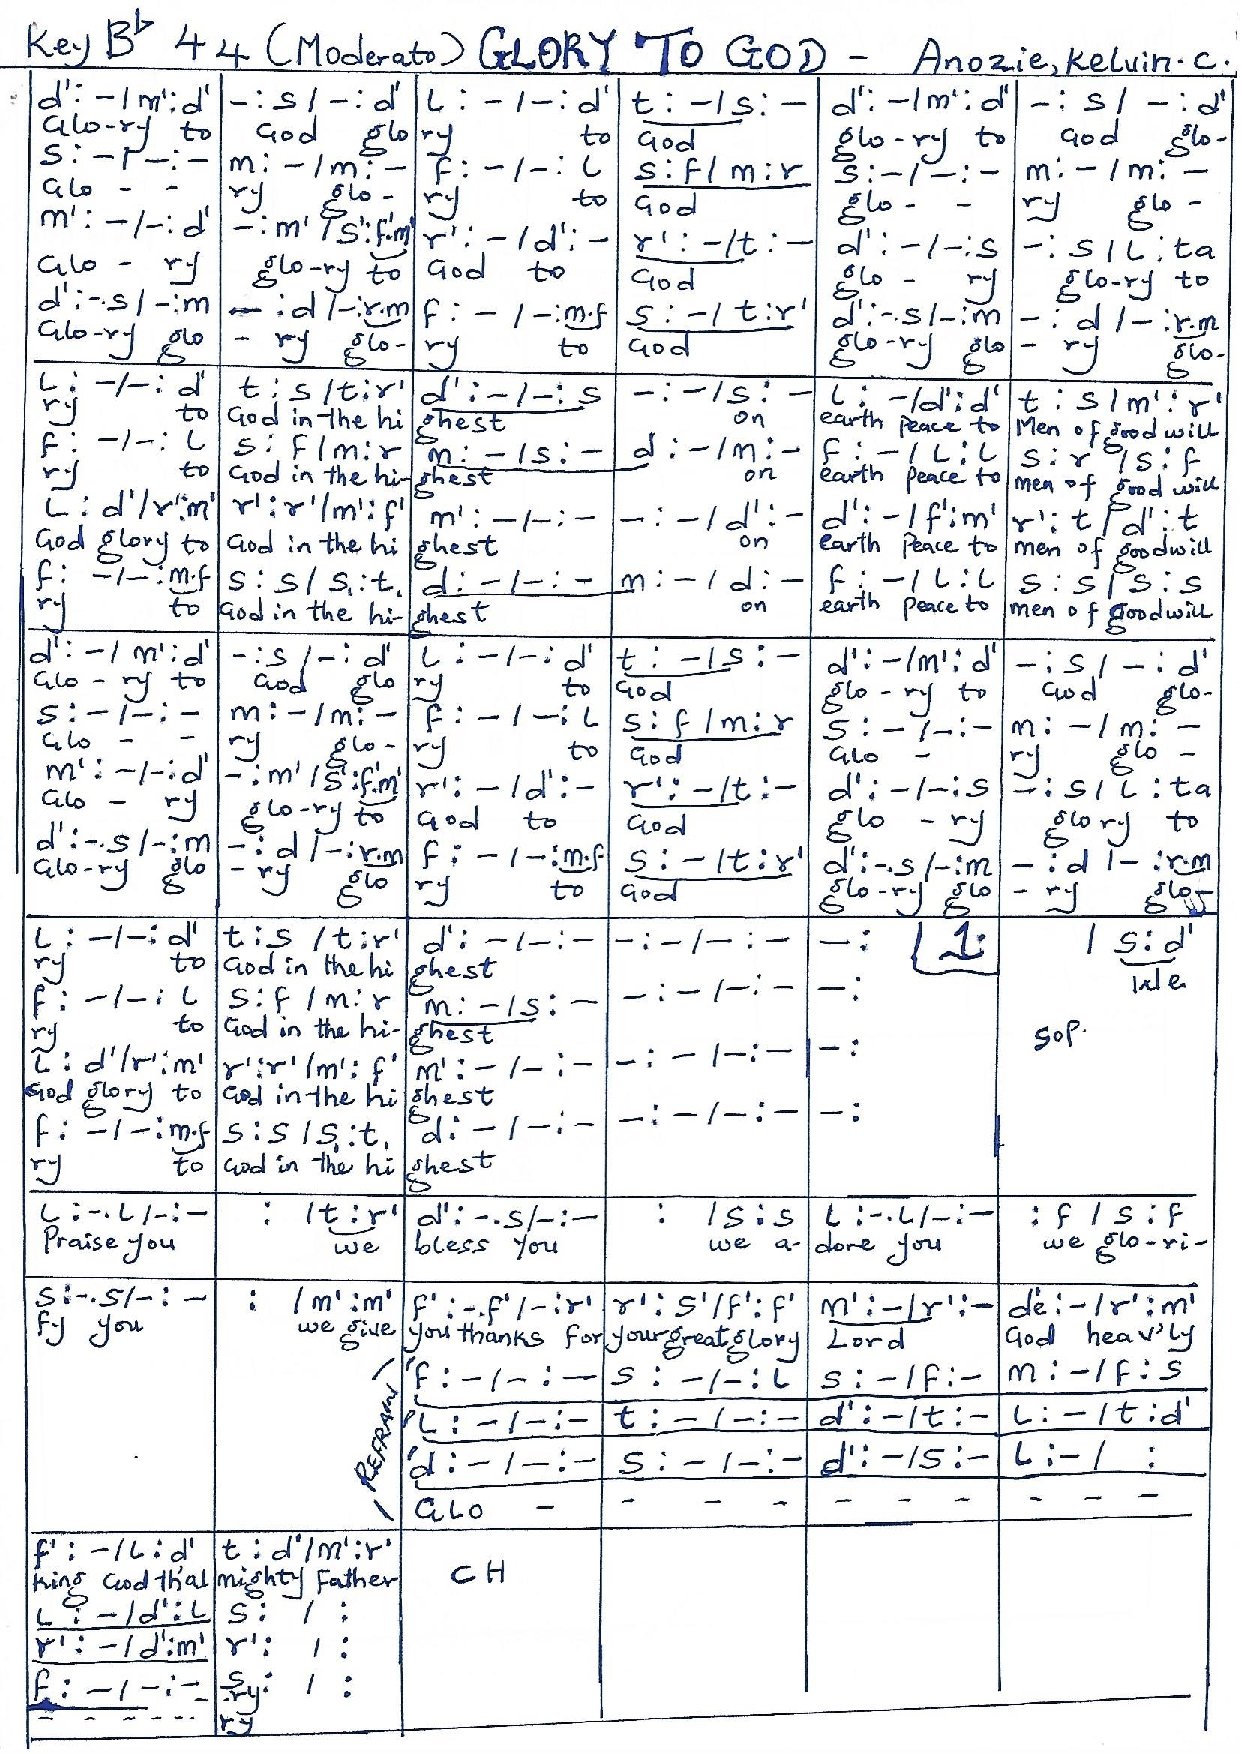 Key B♭ 44 (Moderato) GLORY TO GOD - Anozie, Kelvin. C.
d': -/m': d' | -: s/-: d' | L: -/-: d' | t: -/s: - | d': -/m': d' | -: s/-: d'
Glo-ry to | God glo | ry to | God | glo-ry to | God glo-
s: -/-: - | m: -/m: - | f: -/-: L | s: f/m: r | s: -/-: - | m: -/m: -
Glo - - | ry glo- | ry to | God | glo- - | ry glo -
m': -/-: d' | -: m'/s': f'.m' | r': -/d': - | r': -/t: - | d': -/-: s | -: s/L: ta
Glo - ry | glo-ry to | God to | God | glo - ry | glo-ry to
d': -.s/-: m | -: d/-: r.m | f: -/-: m.f | s: -/t: r' | d': -.s/-: m | -: d/-: r.m
Glo-ry glo | - ry glo- | ry to | God | glo-ry glo | - ry glo-
L: -/-: d' | t: s/t: r' | d': -/-: s | -: -/s: - | L: -/d': d' | t: s/m': r'
ry to | God in the hi | ghest | on | earth Peace to | Men of good will
f: -/-: L | s: f/m: r | m: -/s: - | d: -/m: - | f: -/L: L | s: r/s: f
ry to | God in the hi- | ghest | on | earth Peace to | men of good will
L: d'/r': m' | r': r'/m': f' | m': -/-: - | -: -/d': - | d': -/f': m' | r': t/d': t
God glory to | God in the hi | ghest | on | earth Peace to | men of goodwill
f: -/-: m.f | s: s/s,: t, | d: -/-: - | m: -/d: - | f: -/L: L | s: s/s: s
ry to | God in the hi- | ghest | on | earth Peace to | men of goodwill
d': -/m': d' | -: s/-: d' | L: -/-: d' | t: -/s: - | d': -/m': d' | -: s/-: d'
Glo-ry to | God glo | ry to | God | glo-ry to | God glo-
s: -/-: - | m: -/m: - | f: -/-: L | s: f/m: r | s: -/-: - | m: -/m: -
Glo - - | ry glo- | ry to | God | Glo - | ry glo -
m': -/-: d' | -: m'/s': f'.m' | r': -/d': - | r': -/t: - | d': -/-: s | -: s/L: ta
Glo - ry | glo-ry to | God to | God | glo - ry | glory to
d': -.s/-: m | -: d/-: r.m | f: -/-: m.f | s: -/t: r' | d': -.s/-: m | -: d/-: r.m
Glo-ry glo | - ry glo | ry to | God | glo-ry glo | - ry glo-
L: -/-: d' | t: s/t: r' | d': -/-: - | -: -/-: - | -: [1: | / s: d'
ry to | God in the hi | ghest | We
f: -/-: L | s: f/m: r | m: -/s: - | -: -/-: - | -:
ry to | God in the hi- | ghest | Sop.
L: d'/r': m' | r': r'/m': f' | m': -/-: - | -: -/-: - | -:
God glory to | God in the hi | ghest
f: -/-: m.f | s: s/s,: t, | d: -/-: - | -: -/-: - | -:
ry to | God in the hi | ghest
L: -.L/-: - | : /t: r' | d': -.s/-: - | : /s: s | L: -.L/-: - | : f/s: f
Praise you | we | bless you | we a- | dore you | we glo-ri-
s: -.s/-: - | : /m': m' | f': -.f'/-: r' | r': s'/f': f' | m': -/r': - | de': -/r': m'
fy you | we give | you thanks for | your great glory | Lord | God heav'ly
f: -/-: - | s: -/-: L | s: -/f: - | m: -/f: s
L: -/-: - | t: -/-: - | d': -/t: - | L: -/t: d'
/ REFRAIN /
d: -/-: - | s: -/-: - | d': -/s: - | L: -/ :
GLO - | - - - | - - - | - - -
f': -/L: d' | t: d'/m': r' | CH
King God th'al | mighty Father
L: -/d': L | s: / :
r': -/d': m' | r': / :
f: -/-: - | s: / :
- - - - - | ry
ry